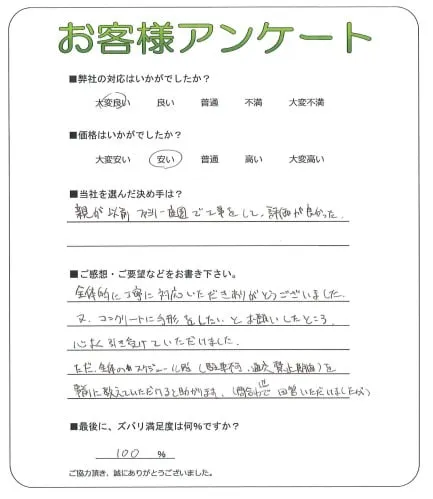 お客様アンケート
■弊社の対応はいかがでしたか？
大変良い 良い 普通 不満 大変不満
■価格はいかがでしたか？
大変安い 安い 普通 高い 大変高い
■当社を選んだ決め手は？
親が以前ファミリー庭園で工事をして、評価が良かった。
■ご感想・ご要望などをお書き下さい。
全体的に丁寧に対応いただきありがとうございました。
又、コンクリートに手形をしたいとお願いしたところ、
心よく引き受けていただけました。
ただ、全体のスケジュール（駐車不可、通交禁止期間）を
教えていただけると助かります。（問合わせで回答いただいましたが）
■最後に、ズバリ満足度は何％ですか？
100 ％
ご協力頂き、誠にありがとうございました。